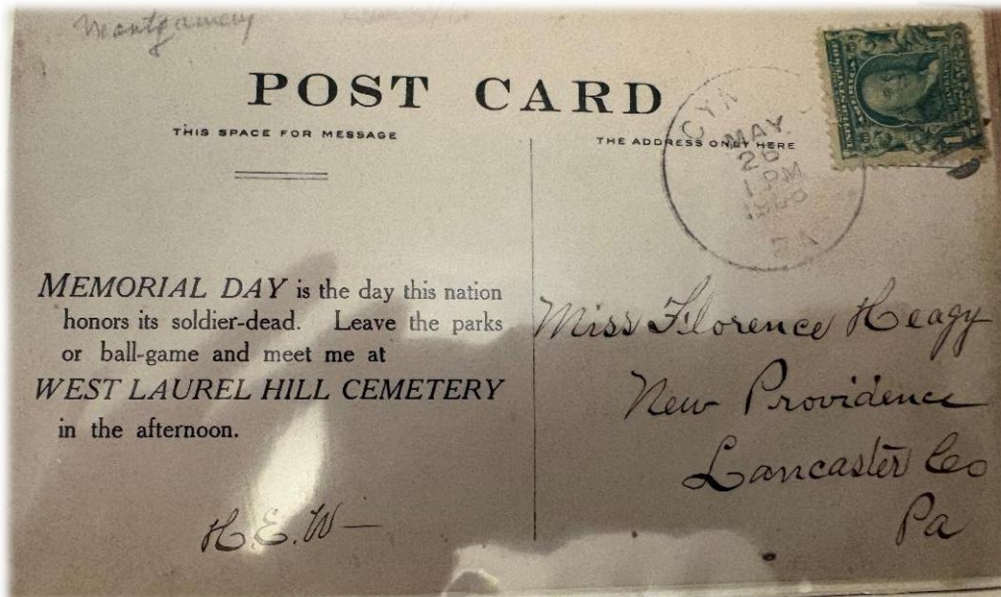 Montgomery
POST CARD
THIS SPACE FOR MESSAGE
THE ADDRESS ONLY HERE
CYN
MAY
26
1 PM
PA
MEMORIAL DAY is the day this nation
honors its soldier-dead. Leave the parks
or ball-game and meet me at
WEST LAUREL HILL CEMETERY
in the afternoon.
H. E. W—
Miss Florence Heagy
New Providence
Lancaster Co
Pa